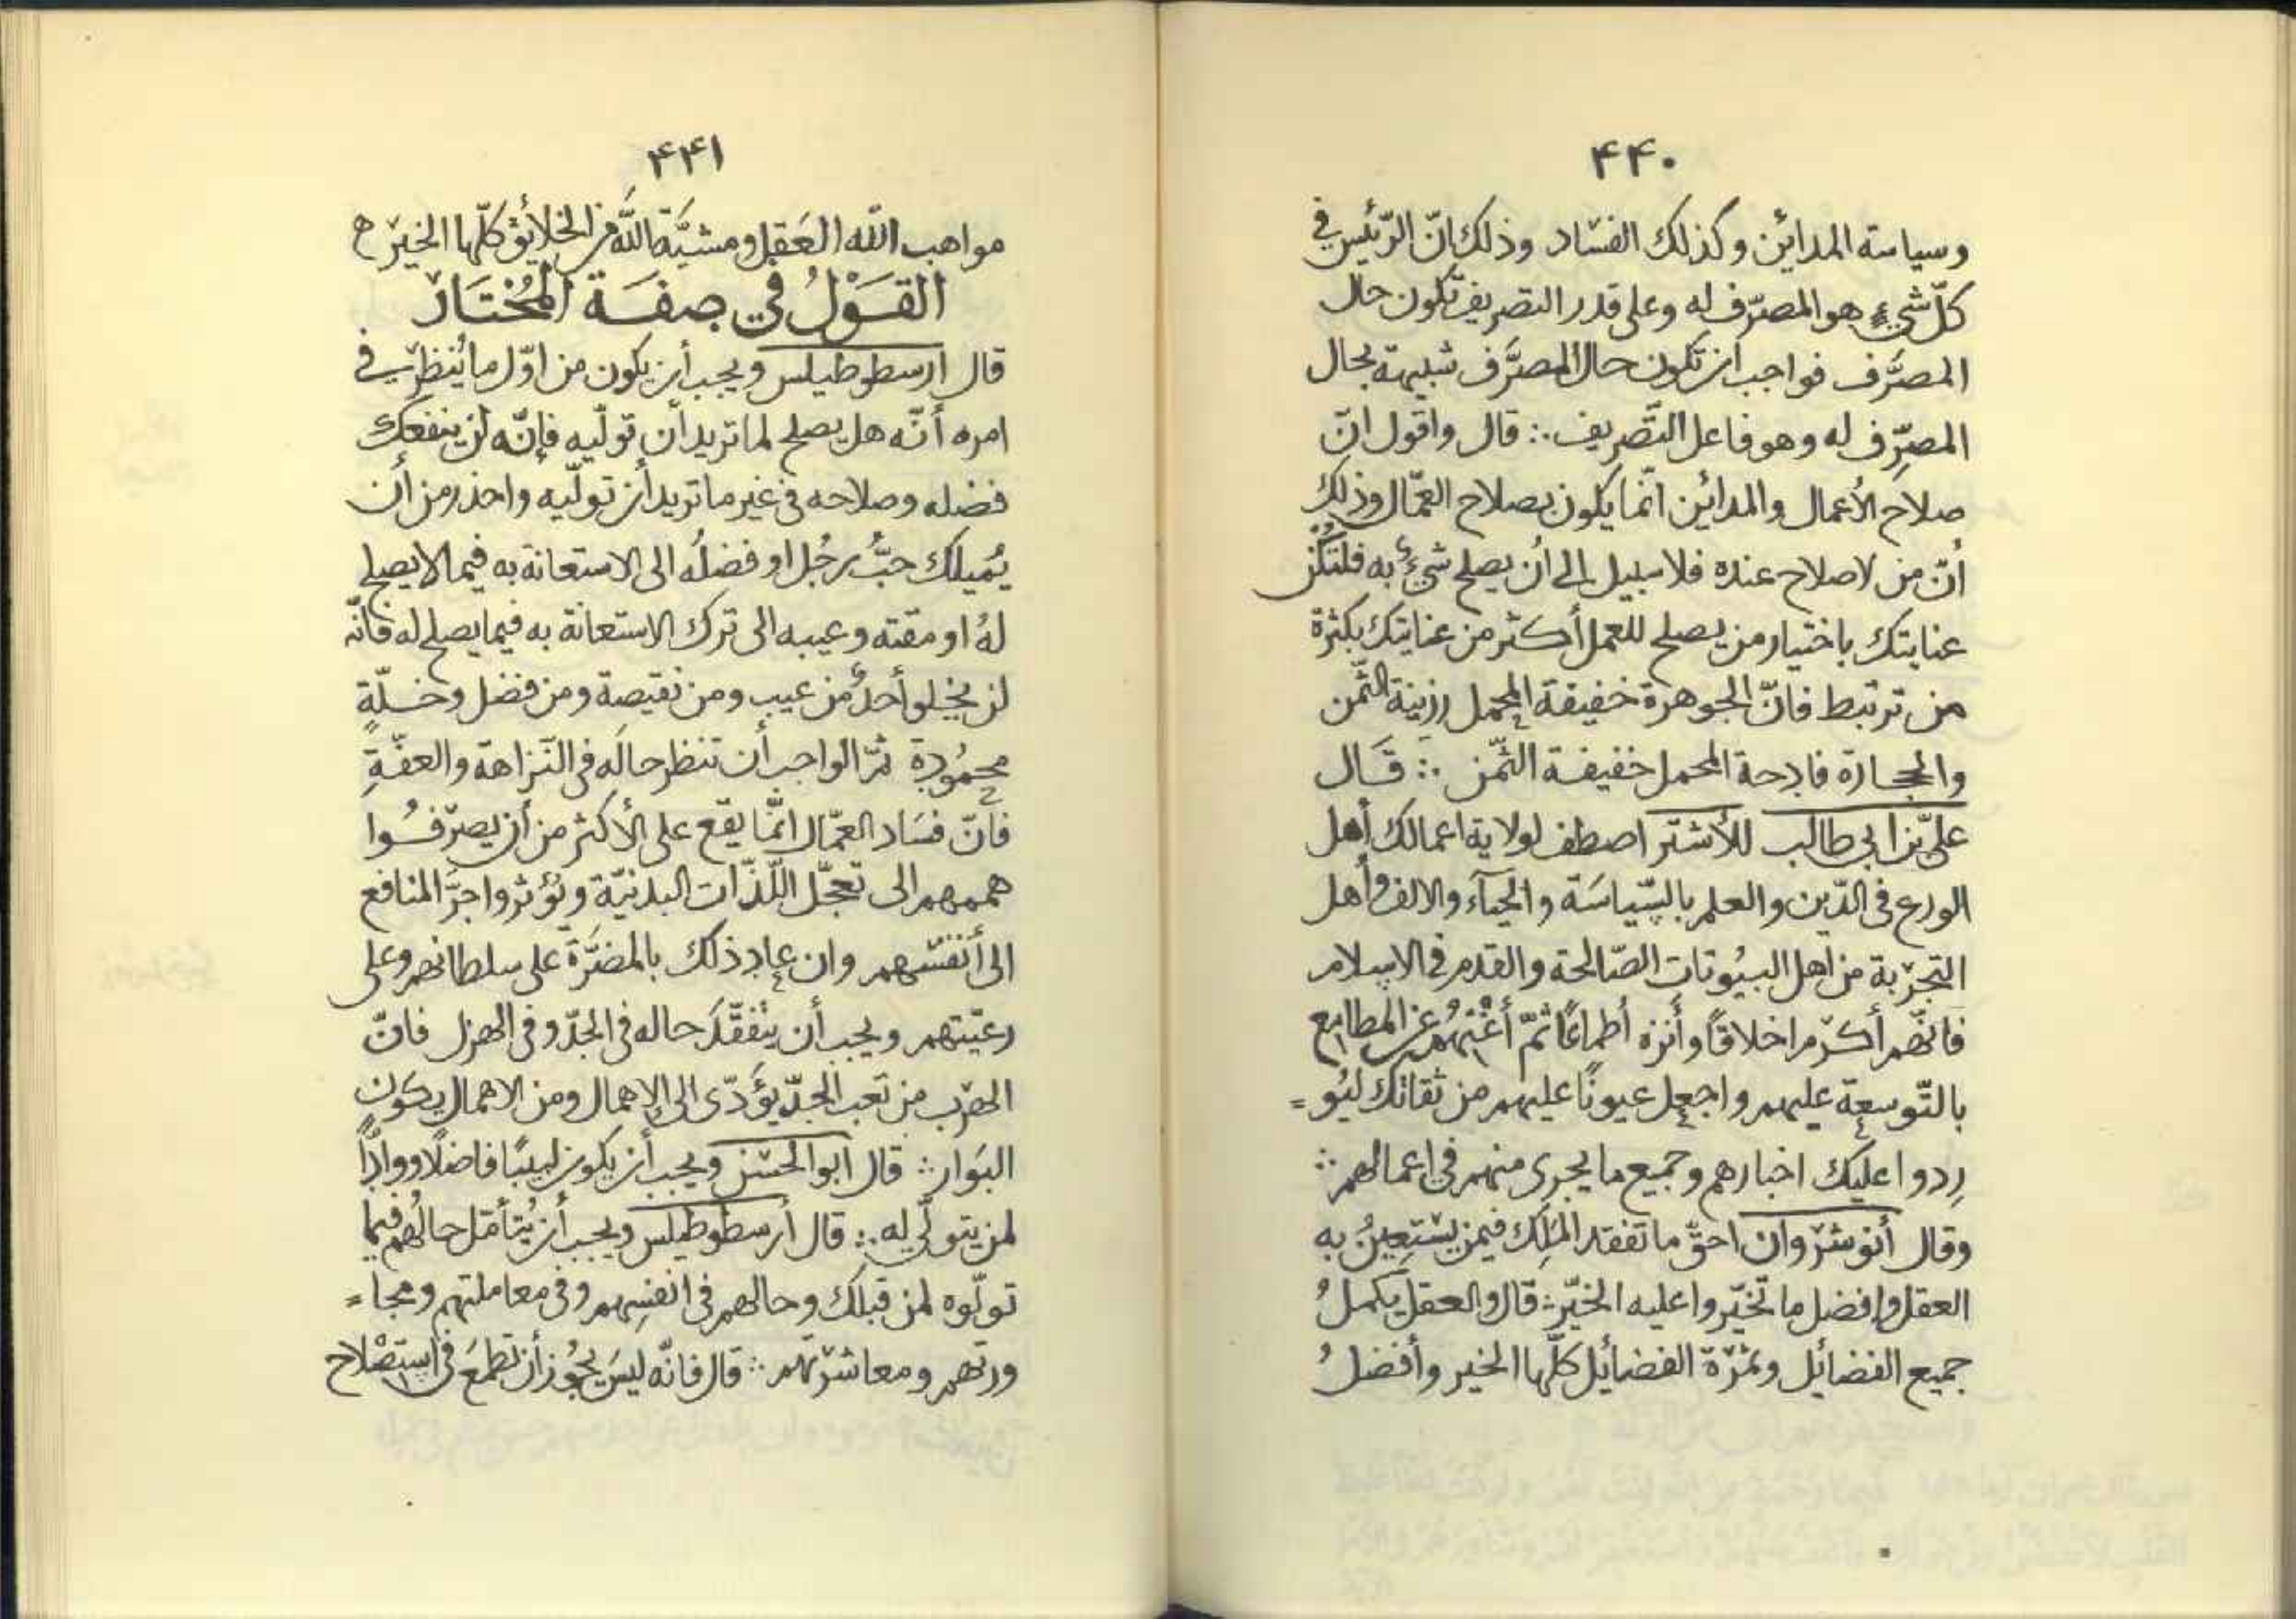 ۴۴۰
وسياسة المدائن وكذلك الفساد وذلك انّ الرّئيس في
كلّ شيء هو المصرّف له وعلى قدر التصريف تكون حال
المصرَّف فواجب ان تكون حال المصرَّف شبيهة بحال
المصرِّف له وهو فاعل التَّصريف ∴ قال واقول انّ
صلاح الأعمال والمدائن انّما يكون بصلاح العمّال وذلك
أنّ من لا صلاح عنده فلا سبيل الى أن يصلح شيءٌ به فلتكُن
عنايتك باختيار من يصلح للعمل أكثر من عنايتك بكثرة
من ترتبط فانّ الجوهرة خفيفة المحمل رزينة الثّمن
والحجارة فادحة المحمل خفيفة الثّمن ∴ قَال
علي بن ابي طالب للأشتر اصطف لولاية اعمالك أهل
الورع في الدّين والعلم بالسّياسَة والحيَآء والالف وأهل
التجربة من اهل البيُوتات الصّالحة والقدم في الاسلام
فانّهم أكرم اخلاقًا وأنزه أطماعًا ثمّ أغْنِهُم عن المطامع
بالتّوسعة عليهم واجعل عيونًا عليهم من ثقاتك ليُو=
رِدوا عليك اخبارهم وجميع ما يجرى منهم في اعمالهم ∴
وقال أنوشروان احقّ ما تفقد المَلِك فيمن يستعِينُ به
العقل وافضل ما تخيّروا عليه الخيّر ∴ قال والعقل يكملُ
جميع الفضائل وثمرة الفضائل كلّها الخير وأفضلُ
۴۴۱
مواهب الله العَقل ومشيَّة اللَّه في الخلائق كلّها الخير ه
القَوْلُ في صِفَة المُخْتَار
قال ارسطوطيلس ويجب أن يكون من اوّل ما يُنظر في
امره أنّه هل يصلح لما تريد أن تولّيه فإنّه لن ينفعك
فضله وصلاحه في غير ما تريد أن تولّيه واحذر من أن
يُميلك حبُّ رجُل او فضلُه الى الاستعانة به فيما لا يصلح
لهُ او مقته وعيبه الى ترك الاستعانة به فيما يصلح له فانّه
لن يخلو أحدٌ من عيب ومن نقيصة ومن فضل وخَلّةٍ
محمُودةٍ ثمّ الواجب أن تنظر حالَه في النّزاهة والعفّةِ
فانّ فسَاد العمّال انّما يقع على الأكثر من أن يصرّفُوا
هممهم الى تعجّل اللّذّات البدنيّة ويُؤثروا جرَّ المنافع
الى أنفسهم وان عاد ذلك بالمضَرَّة على سلطانهم وعلى
رعيّتهم ويجب أن يتفقّدَ حاله في الجدّ وفي الهزل فانّ
الهرب من تعب الجدّ يؤَدّى الى الاهمال ومن الاهمال يكون
البَوار ∴ قال ابو الحسن ويجب أن يكون لبيبًا فاضلًا ووادًّا
لمن يتولّى له ∴ قال أرسطوطيلس ويجب أن يُتأمّل حالُهم فيما
تولّوه لمن قبلك وحالهم في انفسِهم وفي معاملتهم ومجا=
ورتهم ومعاشرتهم ∴ قال فانّه ليسَ يجُوز أن تطمَعَ في استصْلاح